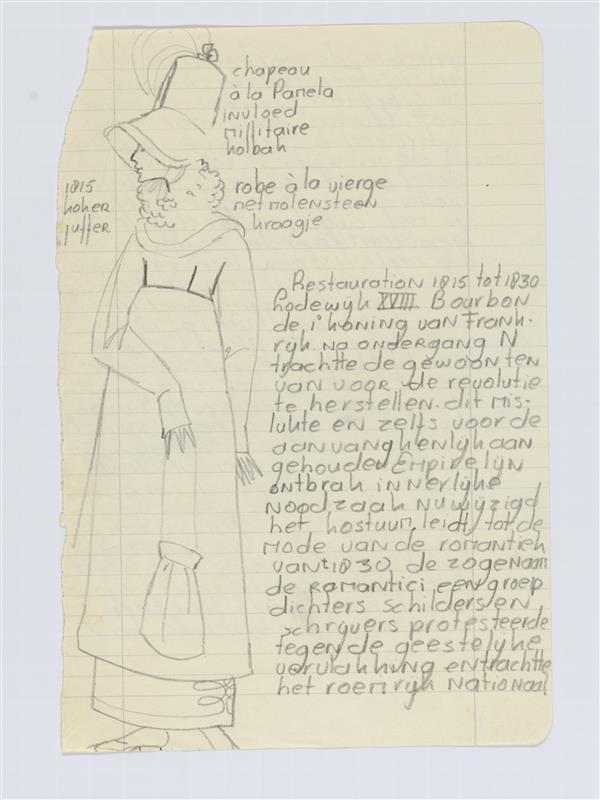 chapeau
à la Pamela
invloed
millitaire
kolbak
1815
hoker
juffer
robe à la vierge
met molensteen
kraagje
Restauration 1815 tot 1830
Lodewijk XVIII Bourbon
de 1e koning van Frank-
rijk na ondergang N
trachtte de gewoonten
van voor de revolutie
te herstellen. dit mis-
lukte en zelfs voor de
aanvankenlijk aan
gehouden Empire lijn
ontbrak innerlijke
noodzaak nu wijzigd
het kostuum leidt tot de
mode van de romantiek
van ± 1830 de zogenaam
de romantici een groep
dichters schilders en
schrijvers protesteerde
tegen de geestelijke
vervlakking en trachtte
het roemrijk nationaal